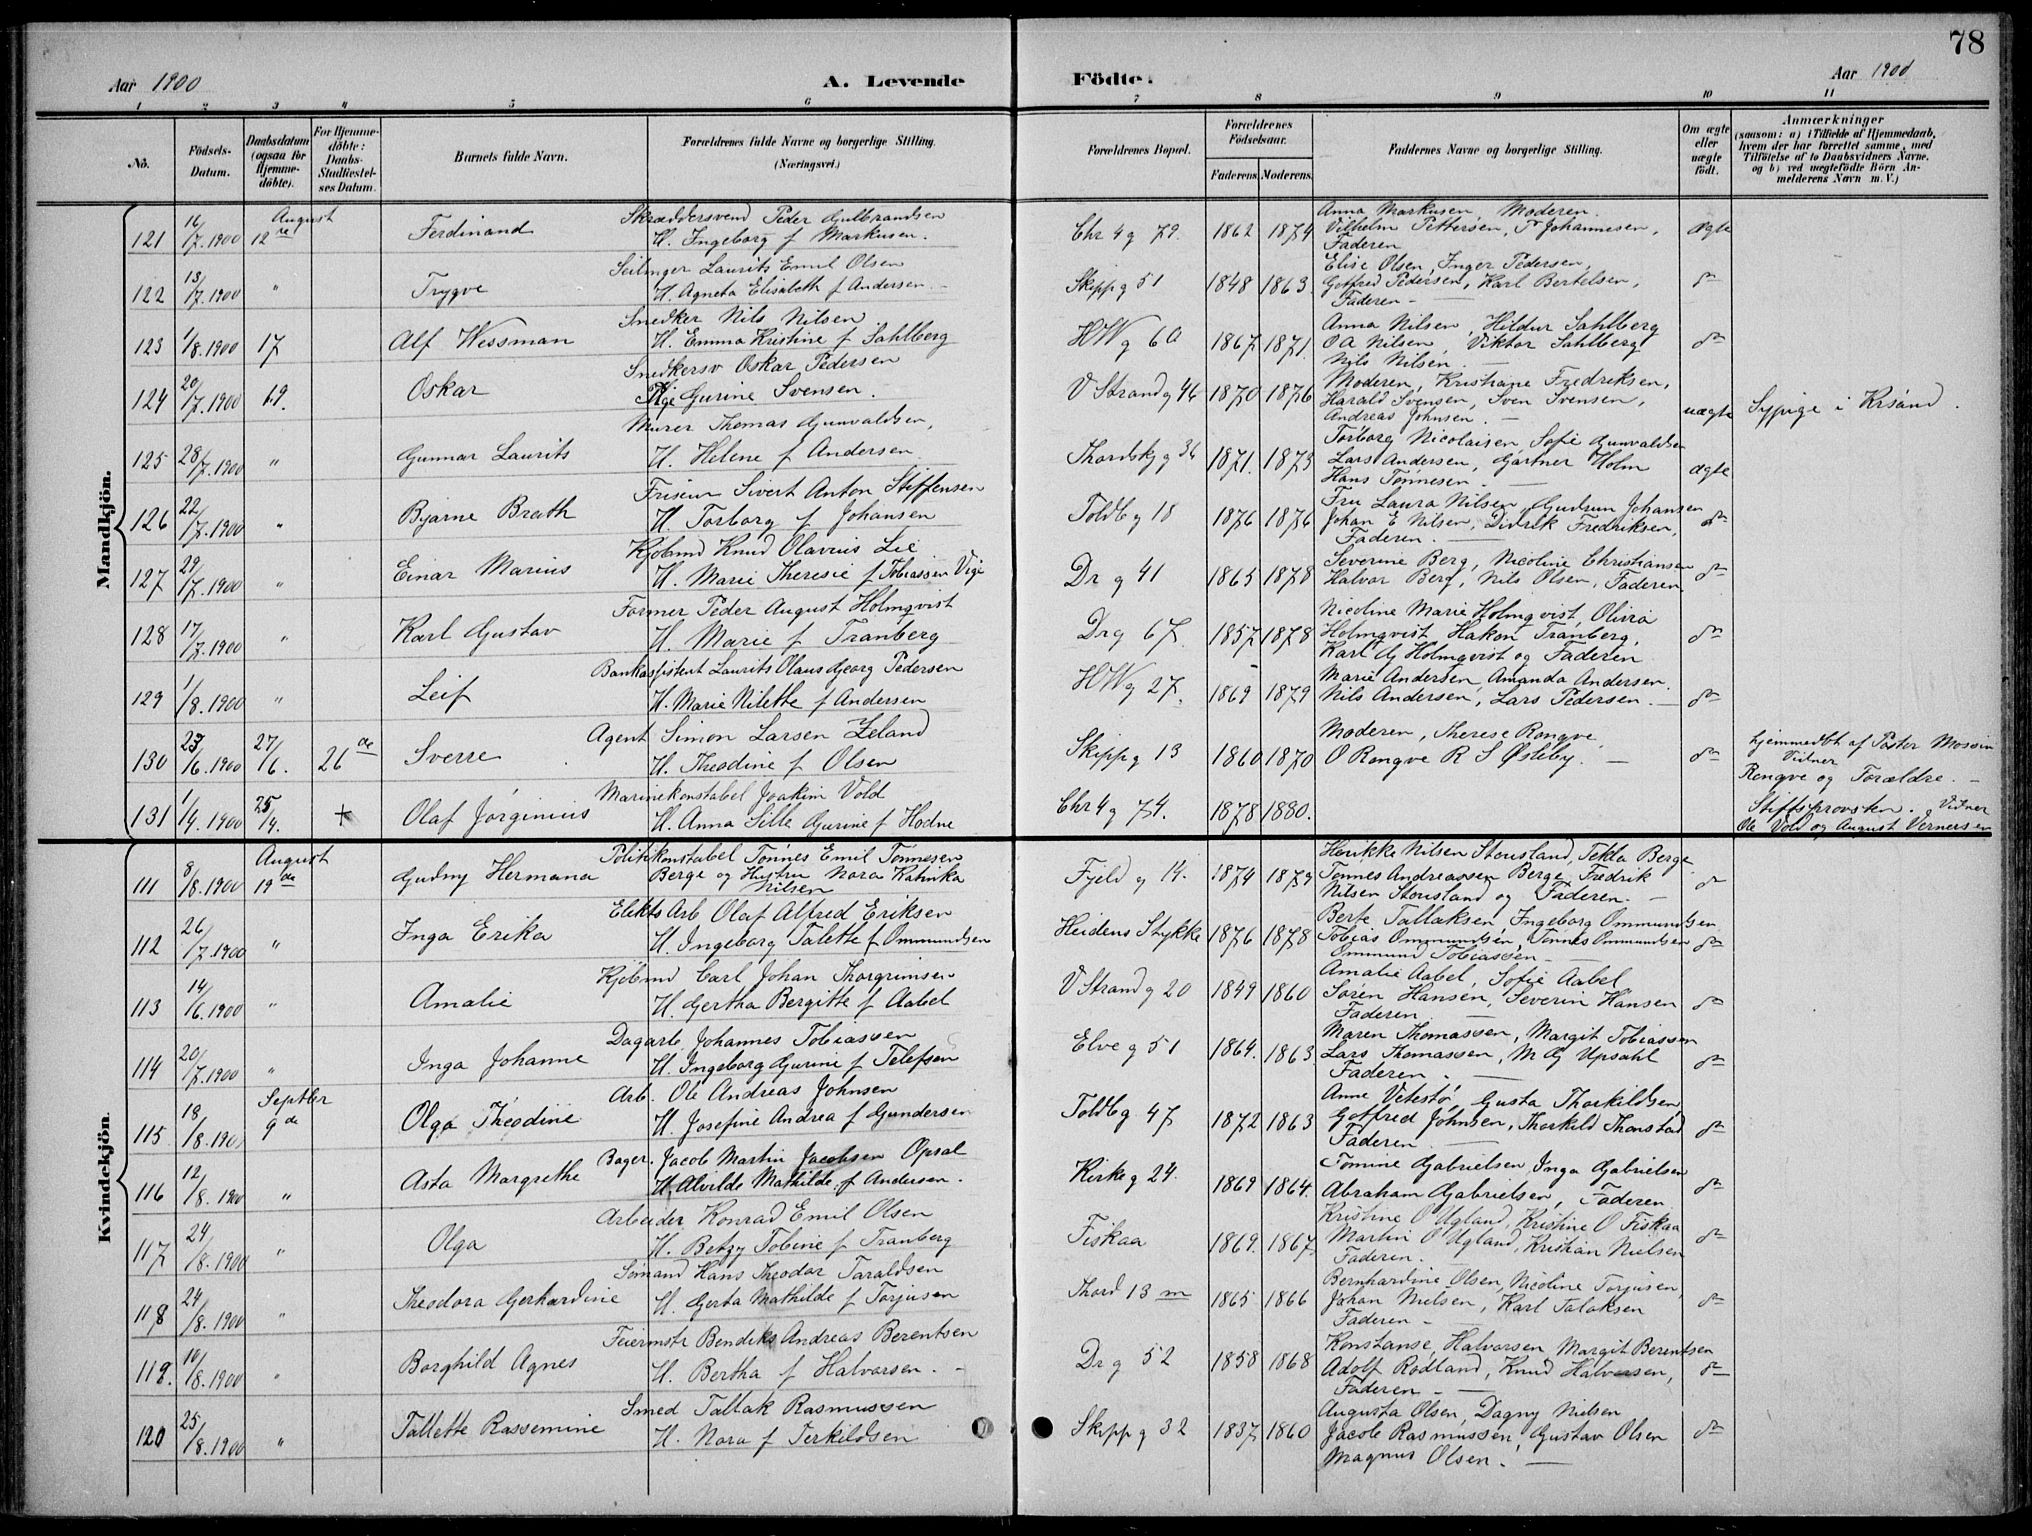 78
Aar 1900
A. Levende
Födte.
Aar 1900
1 2 3 4 5 6 7 8 9 10 11
No.
Födsels-
Datum.
Daabsdatum
(ogsaa for
Hjemme-
döbte).
For Hjemme-
döbte:
Daabs-
Stadfæstel-
ses Datum.
Barnets fulde Navn.
Forældrenes fulde Navne og borgerlige Stilling.
(Næringsvei.)
Forældrenes Bopæl.
Forældrenes
Födselsaar.
Faderens. Moderens.
Faddernes Navne og borgerlige Stilling.
Om ægte
eller
uægte
födt.
Anmærkninger
(saasom: a) i Tilfælde af Hjemmedaab,
hvem der har forrettet samme, med
Tilföielse af to Daabsvidners Navne,
og b) ved uægtefödte Börn An-
melderens Navn m. V.)
Mandkjön.
August
121 16/7.1900 12te Ferdinand
Skræddersvend Peder Gulbrandsen
H. Ingeborg f Markusen.
Chr 4 g 79. 1862 1874
Anna Markusen, Moderen.
Vilhelm Pettersen, P Johannesen,
Faderen
ægte
122 13/7.1900 " Trygve
Seilmager Laurits Emil Olsen
H. Agneta Elisabeth f Andersen.
Skipp g 51 1848 1863.
Elise Olsen, Inger Pedersen,
Gotfred Pedersen, Karl Bertelsen,
Faderen —
do
123 1/8.1900 17 Alf Wessman
Snedker Nils Nilsen
H. Emma Kristine f Sahlberg
HW g 60 1867 1871.
Anna Nilsen, Hildur Sahlberg
O A Nilsen Viktor Sahlberg
Nils Nilsen. —
do
124 20/7.1900 19. Oskar
Snedkersv Oskar Pedersen
Pige Gurine Svensen.
V Strand g 46 1870 1876
Moderen, Kristiane Fredriksen,
Harald Svensen, Sven Svensen,
Andreas Johnsen. —
uægte
Sypige i Krsand.
125 28/7.1900 " Gunnar Laurits
Murer Thomas Gunvaldsen,
H. Helene f Andersen.
Thordsk g 36 1871. 1873
Torborg Nicolaisen Sofie Gunvaldsen
Lars Andersen, Gartner Holm
Hans Tønnesen. —
ægte
126 22/7.1900 " Bjarne Brath
Friseur Sivert Anton Steffensen
H. Torborg f Johansen
Toldb g 18 1876 1876
Fru Laura Nilsen, Gudrun Johansen
Johan E Nilsen, Didrik Fredriksen,
Faderen. —
do
127 29/7.1900 " Einar Marius
Kjøbmd Knud Olavius Lie
H. Marie Theresie f Tobiassen Vige
Dr g 41 1865 1878
Severine Berg, Nicoline Christiansen
Halvor Berg, Nils Olsen, Faderen
do
128 17/7.1900 " Karl Gustav
Former Peder August Holmqvist
H. Marie f Tranberg
Dr g 67. 1857 1878
Nicoline Marie Holmqvist, Olivia
Holmqvist Hakon Tranberg,
Karl Aj Holmqvist og Faderen
do
129 1/8.1900 " Leif
Bankassistent Laurits Olaus Georg Pedersen
H. Marie Nilette f Andersen
HW g 27. 1869 1879
Marie Andersen, Amanda Andersen.
Nils Andersen, Lars Pedersen. —
do
130 23/6.1900 27/6. 26de Sverre
Agent Simon Larsen Zeland
H. Theodine f Olsen
Skipp g 13 1860 1870
Moderen, Therese Rongve,
O Rongve R S Østeby. —
do
hjemmedbt af Pastor Mossin
Vidner
Rongve og Forældre. —
131 1/4.1900 25/4. + Olaf Jørginius
Marinekonstabel Joakim Vold
H. Anna Sille Gurine f Hodne
Chr 4 g 74. 1878 1880.
Stiftsprovsten. Vidner
Ole Vold og August Vernersen
Kvindekjön.
August
111 8/8.1900 19de Gudny Hermana
Politikonstabel Tønnes Emil Tønnesen
Berge og Hustru Nora Kathrika
Nilsen
Fjeld g 14. 1874 1879
Henrikke Nilsen Stousland, Tekla Berge
Tønnes Andreassen Berge, Fredrik
Nilsen Stousland og Faderen. —
do
112 26/7.1900 " Inga Erika
Elektr Arb Olaf Alfred Eriksen
H. Ingeborg Talette f Ommundsen
Heidens Stykke 1876 1878
Berte Tallaksen, Ingeborg Ommundsen.
Tobias Ommundsen, Tønnes Ommundsen
Ommund Tobiassen —
do
113 14/6.1900 " Amalie
Kjøbmd Carl Johan Thorgrimsen
H. Gertha Bergitte f Aabel
V Strand g 20 1849 1860
Amalie Aabel, Sofie Aabel
Søren Hansen, Severin Hansen
Faderen —
do
114 20/7.1900 " Inga Johanne
Dagarb. Johannes Tobiassen
H. Ingeborg Gurine f Telefsen
Elve g 51 1864. 1863
Maren Thomassen, Margit Tobiassen
Lars Thomassen, M Aj Upsahl
Faderen. —
do
Septbr
115 18/8.1900 9de Olga Theodine
Arb. Ole Andreas Johnsen
H. Josefine Andrea f Gundersen
Toldb g 47 1872 1863
Anne Vetestø, Gusta Thorkildsen,
Gotfred Johnsen, Thorkild Thorstad
Faderen —
do
116 12/8.1900 " Asta Margrethe
Bager. Jacob Martin Jacobsen Opsal
H. Alvilde Mathilde. f Andersen.
Kirke g 24. 1869 1864.
Tomine Gabrielsen, Inga Gabrielsen
Abraham Gabrielsen, Faderen
do
117 24/8.1900 " Olga
Arbeider Konrad Emil Olsen
H. Betzy Tobine f Tranberg
Fiskaa 1869. 1867.
Kristine O Ugland, Kristine O Fiskaa
Martin O Ugland, Kristian Nielsen
Faderen. —
do
118 24/8.1900 " Theodora Gerhardine
Sømand Hans Theodor Taraldsen
H. Gerta Mathilde f Torjusen
Thord 13 m 1865 1866
Bernhardine Olsen, Nicoline Torjusen,
Johan Nielsen, Karl Talaksen
Faderen —
do
119. 10/8.1900 " Borghild Agnes
Feiermstr Bendiks Andreas Berentsen
H. Bertha f Halvorsen. —
Dr g 52 1858 1868
Konstanse Halvorsen Margit Berentsen
Adolf Rødland, Knud Halvorsen,
Faderen — —
do
120 25/8.1900 " Tallette Rassemine
Smed Tallak Rasmussen
H. Nora f Terkildsen
Skipp g 32 1837 1860
Augusta Olsen, Dagny Nielsen
Jacob Rasmussen, Gustav Olsen
Magnus Olsen. —
do